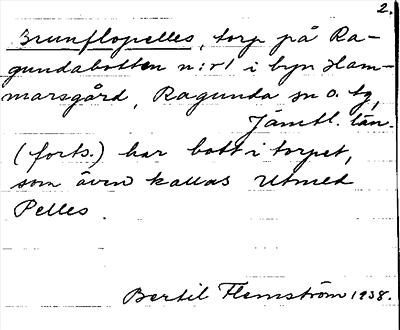 2.
Brunflopelles, torp på Ra-
gundabotten n:r 1 i byn Ham-
marsgård, Ragunda sn o. tg,
Jämtl. län.
(forts.) har bott i torpet,
som även kallas Utmed
Pelles.
Bertil Flemström 1938.